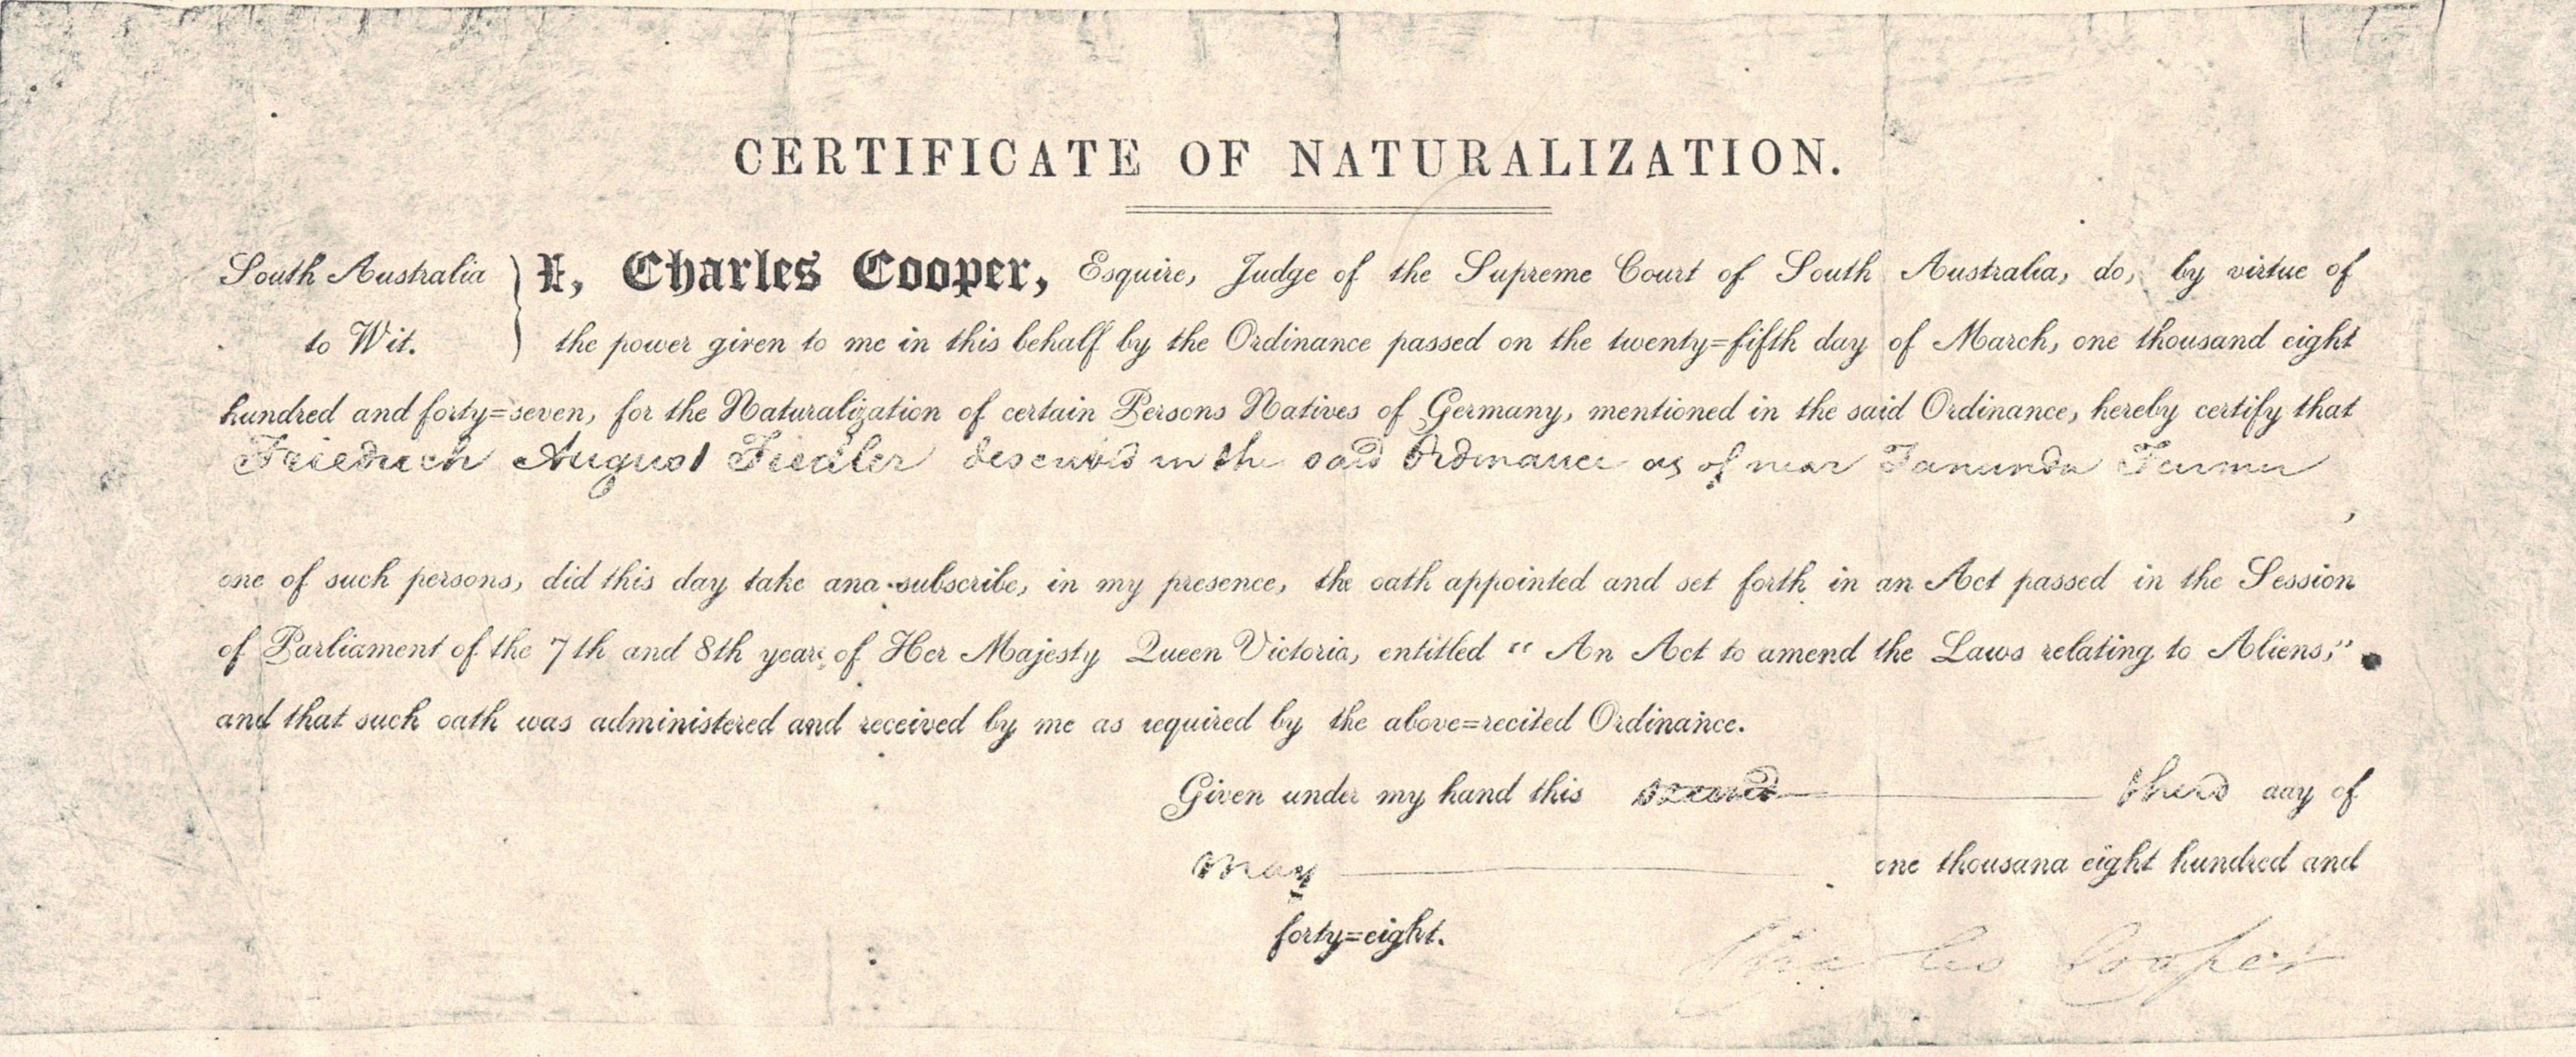 CERTIFICATE OF NATURALIZATION.
South Australia } I, Charles Cooper, Esquire, Judge of the Supreme Court of South Australia, do, by virtue of
to Wit. the power given to me in this behalf by the Ordinance passed on the twenty=fifth day of March, one thousand eight
hundred and forty=seven, for the Naturalization of certain Persons Natives of Germany, mentioned in the said Ordinance, hereby certify that
Friedrich August Fiedler described in the said Ordinance as of near Tanunda Farmer
,
one of such persons, did this day take and subscribe, in my presence, the oath appointed and set forth in an Act passed in the Session
of Parliament of the 7th and 8th years of Her Majesty Queen Victoria, entitled “ An Act to amend the Laws relating to Aliens,”
and that such oath was administered and received by me as required by the above=recited Ordinance.
Given under my hand this second third day of
May one thousand eight hundred and
forty=eight.
Charles Cooper